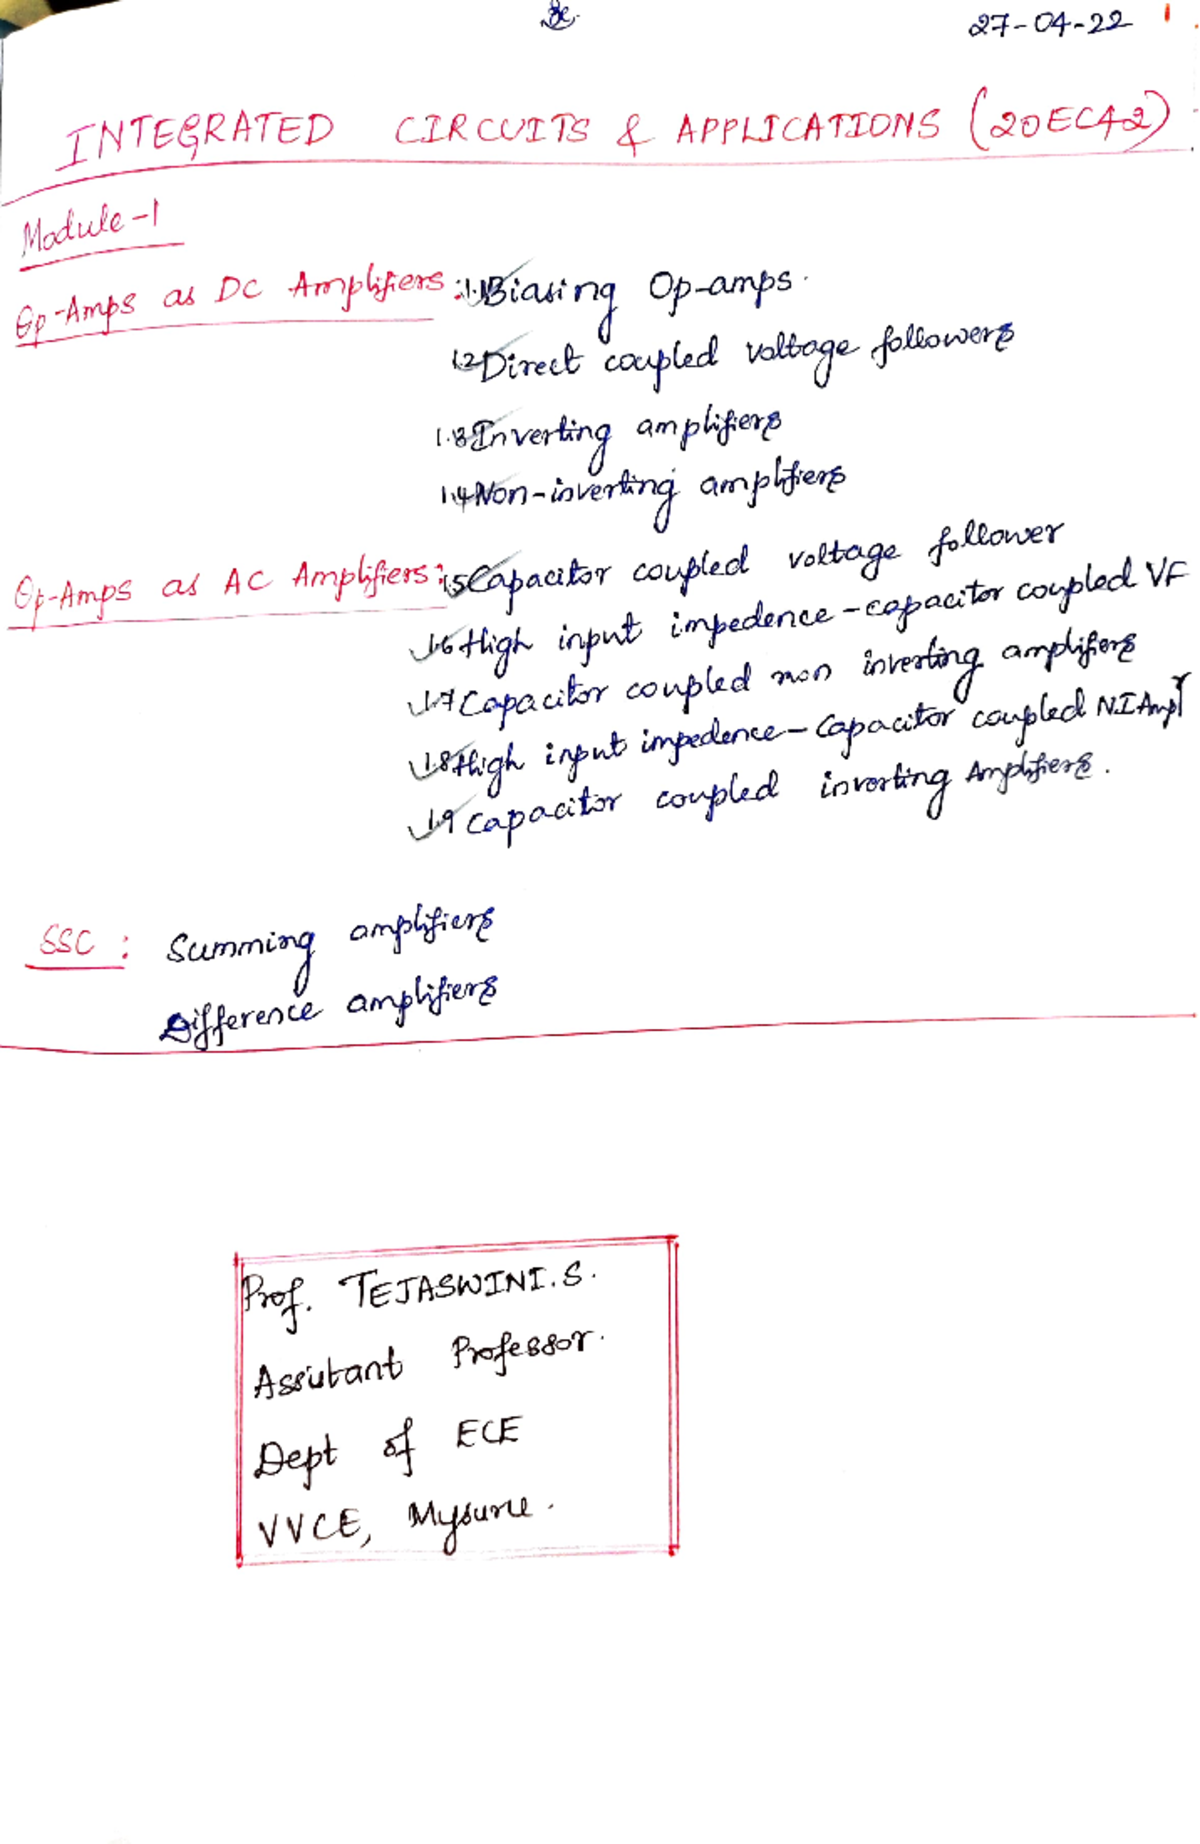 27-04-22 1
INTEGRATED CIRCUITS & APPLICATIONS (20EC42)
Module-1
Op-Amps as DC Amplifiers: 1.1 Biasing Op-amps.
1.2 Direct coupled voltage followers
1.3 Inverting amplifiers
1.4 Non-inverting amplifiers
Op-Amps as AC Amplifiers: 1.5 Capacitor coupled voltage follower
1.6 High input impedence-capacitor coupled VF
1.7 Capacitor coupled non inverting amplifiers
1.8 High input impedence-Capacitor coupled N.I Amplr
1.9 Capacitor coupled inverting Amplifiers.
SSC: Summing amplifiers
Difference amplifiers
Prof. TEJASWINI.S.
Assistant Professor.
Dept of ECE
VVCE, Mysuru.